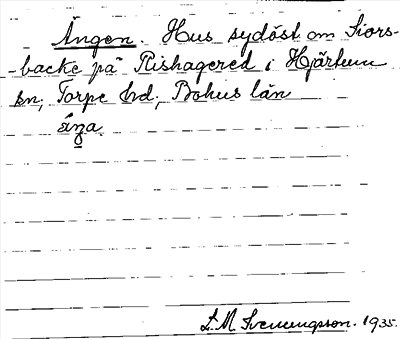 Ängen. Hus sydöst om Siors-
-backe på Rishagered i Hjärtum
kn, Torpe hd, Bohus län
äŋa
L. M. Svenungsson. 1935.